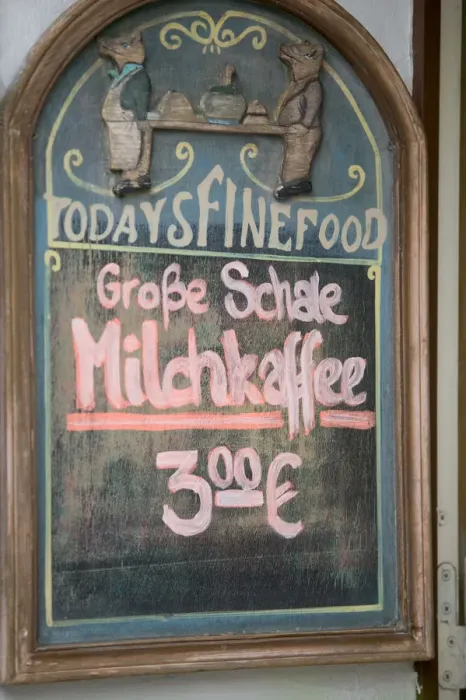 TODAYS FINE FOOD
Große Schale
Milchkaffee
300 €